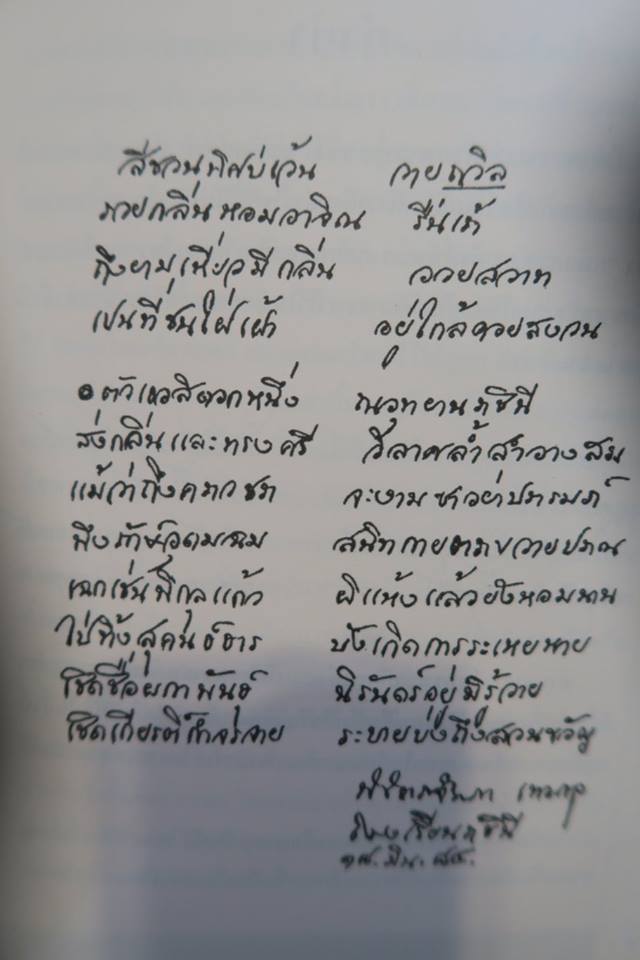 สีชวนพิศบ่เว้น วายถวิล
รวยกลิ่นหอมอาจิณ รื่นเร้า
ถึงยามเหี่ยวมีกลิ่น อวยสวาท
เปนที่ชนใฝ่เฝ้า อยู่ใกล้คอยสงวน
๏ ตัวเธอสิดอกหนึ่ง ณอุทยานราชินี
ส่งกลิ่นและทรงศรี วิลาศล้ำสำอางสม
แม้ว่าถึงคราวชรา จะงาม
พึงรักษ์อุดมเฉม สนิทกาย
เฉกเช่นพิกุลแก้ว ผิแห้งแล้วยังหอมนาน
ไป่ทิ้งสุคนธ์ธาร บังเกิดการระเหยหาย
เชิดชื่อ พันธุ์ นิรันดร์อยู่มิรู้วาย
เชิดเกียรติ์กำจรจาย ระบายบ่งถึงสวนขวัญ
โรงเรียนราชินี